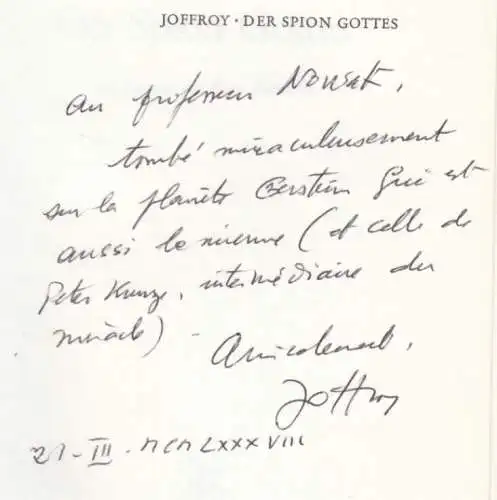 JOFFROY · DER SPION GOTTES
au professeur Nowsak,
tombé miraculeusement
sur la planète Gerstein qui est
aussi la mienne (et celle de
Peter Kunze, intermédiaire du
miracle) -
Amicalement,
Joffroy
21 - III - MCMLXXXVIII